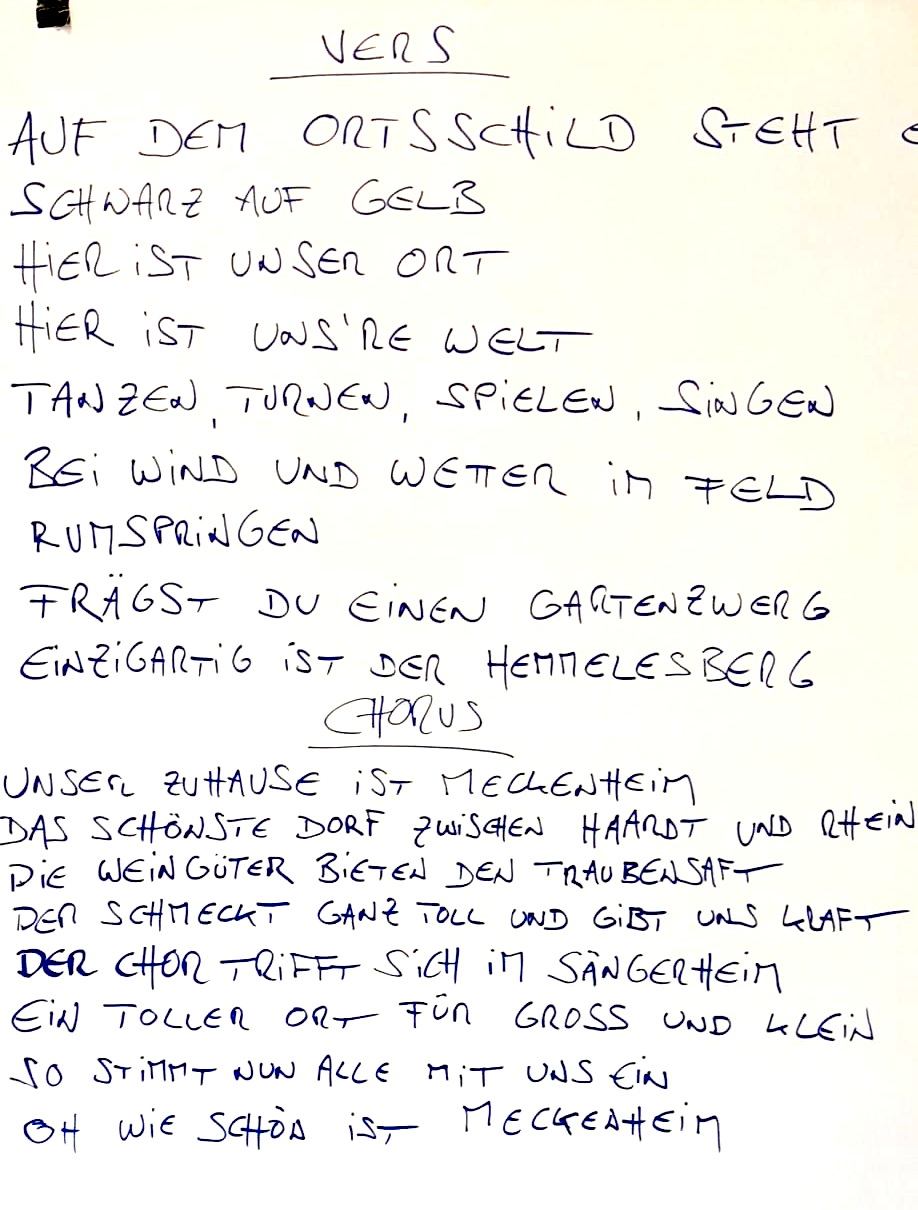 VERS
AUF DEM ORTSSCHILD STEHT
SCHWARZ AUF GELB
HIER IST UNSER ORT
HIER IST UNS'RE WELT
TANZEN, TURNEN, SPIELEN, SINGEN
BEI WIND UND WETTER IM FELD
RUMSPRINGEN
FRÄGST DU EINEN GARTENZWERG
EINZIGARTIG IST DER HEMMELESBERG
CHORUS
UNSER ZUHAUSE IST MECKENHEIM
DAS SCHÖNSTE DORF ZWISCHEN HAARDT UND RHEIN
DIE WEINGÜTER BIETEN DEN TRAUBENSAFT
DER SCHMECKT GANZ TOLL UND GIBT UNS KRAFT
DER CHOR TRIFFT SICH IM SÄNGERHEIM
EIN TOLLER ORT FÜR GROSS UND KLEIN
SO STIMMT NUN ALLE MIT UNS EIN
OH WIE SCHÖN IST MECKENHEIM